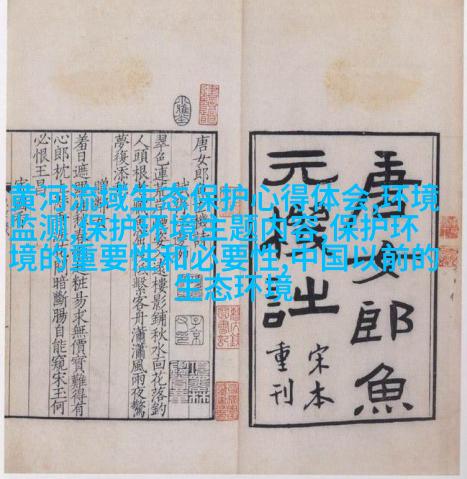 黄河流域生态保护心得体会,环境
监测,保护环境主题内容,保护环
境的重要性和必要性,中国以前的
生态环境
唐女郎魚
元機詩
宋本
重刊
唐女郎
翠色連荒遠樓影鋪秋水面花落釣
人頭根繫客舟瀟瀟風雨夜驚
夢復添
日遮春粧易求無價寶難得有
心郎枕暗斷腸自能窺宋玉何
必恨王昌